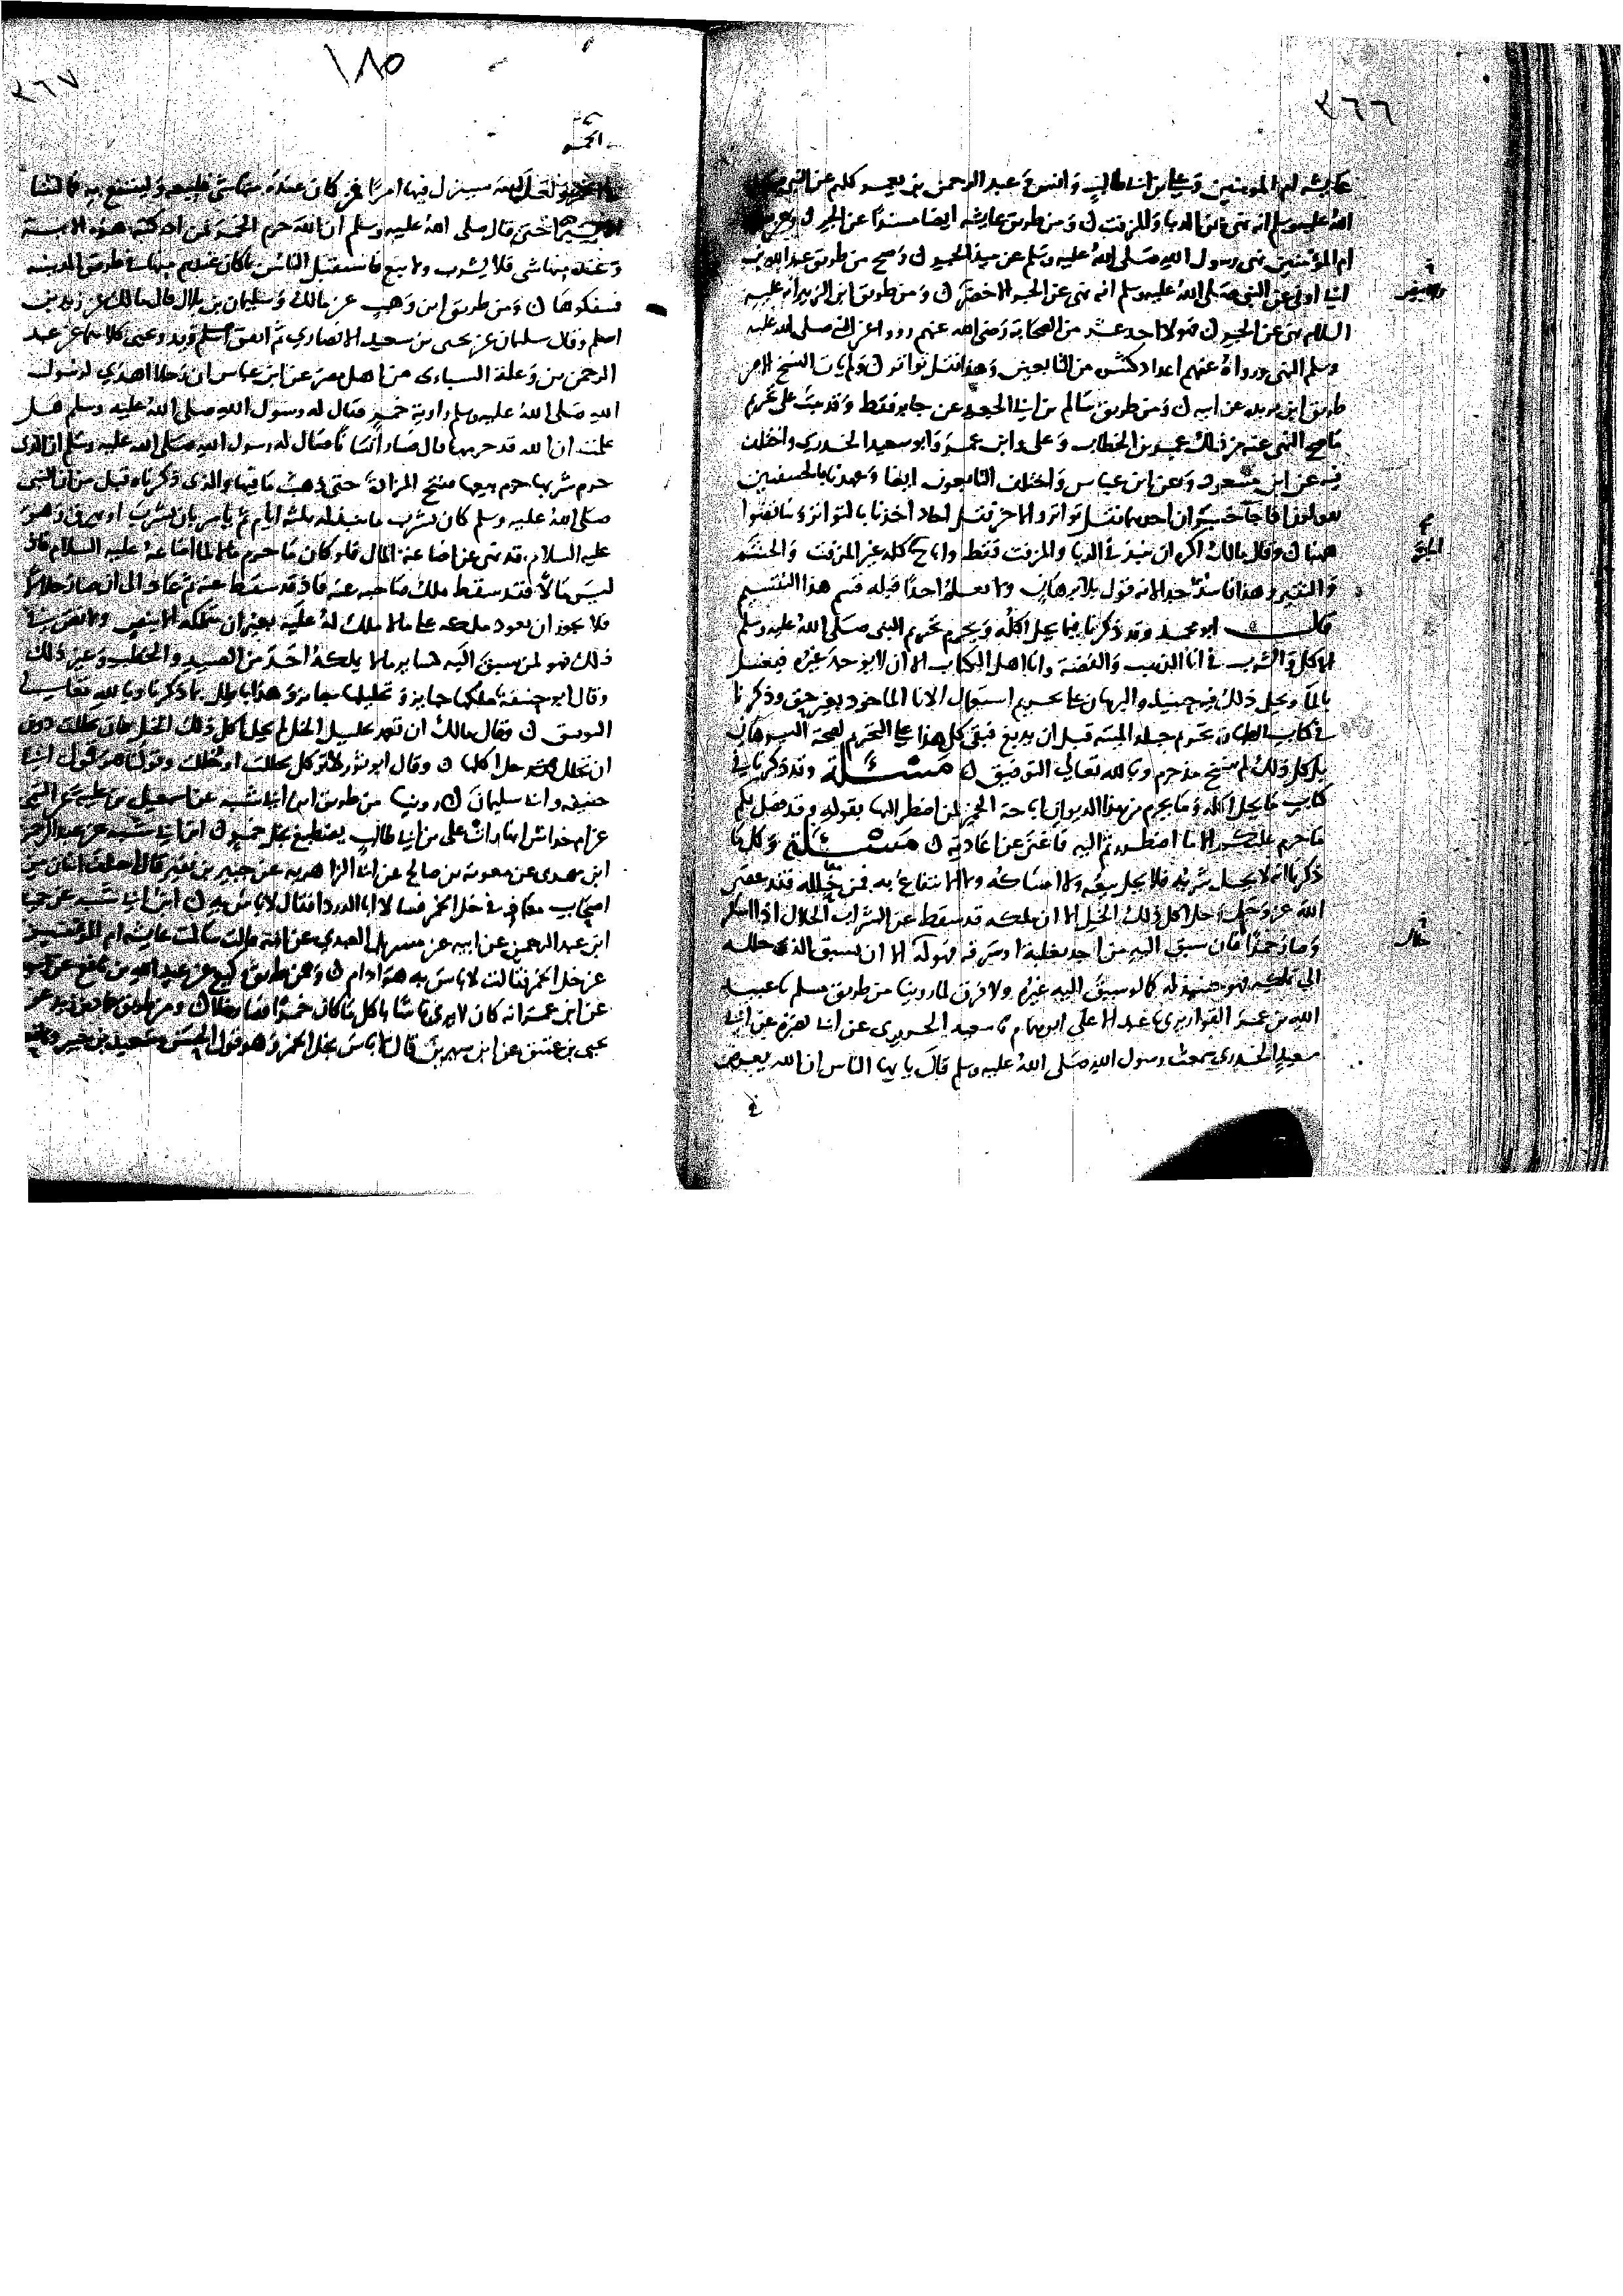 ٣٦٦
عايشه ام المومنين وعلي بن ابي طالب وانس وعبد الرحمن بن يعمر كلهم عن النبي صلى
الله عليه وسلم انه نهى عن الدبا والمزفت ومن طريق عايشه ايضا مسندا عن الجر وعن
ام المؤمنين نهى رسول الله صلى الله عليه وسلم عن نبيذ الجر وصح من طريق عبد الله بن
ابي اوفى عن النبي صلى الله عليه وسلم انه نهى عن الجر الاخضر ومن طريق ابن الزبير انه عليه
السلام نهى عن الجر فهولا احد عشر من الصحابة رضي الله عنهم رووا عن النبي صلى الله عليه
وسلم النهي ورواه عنهم اعداد كثير من التابعين وهذا نقل تواتر ولم يات النسخ الا من
طريق ابن بريده عن ابيه ومن طريق سالم بن ابي الجعد عن جابر فقط وقد ثبت على تحريم
ما صح النهي عنه من ذلك عمر بن الخطاب وعلي وابن عمر وابو سعيد الخدري واختلف
فيه عن ابن مسعود وعن ابن عباس واختلف التابعون ايضا وعهدنا بالحنفيين
يقولون اذا جا خبران احدهما نقل تواتر والاخر نقل احاد اخذنا بالتواتر
هنا وقال مالك اكره ان ينبذ في الدبا والمزفت فقط واباح كله غير المزفت والحنتم
والنقير وهذا قول بلا برهان ولا نعلم احدا قبله قسم هذا التقسيم
قال ابو محمد وقد ذكرنا فيما يحل اكله ويحرم تحريم النبي صلى الله عليه وسلم
الاكل والشرب في انا الذهب والفضة وانا اهل الكتاب الا ان لا يوجد غيره فيغسل
بالما ويحل ذلك فيه حينيذ والبرهان على تحريم استعمال الانا الماخوذ بغير حق وذكرنا
في كتاب الطهارة تحريم جلد الميته قبل ان يدبغ فبقي كل هذا على التحريم لصحة البرهان
بان كل ذلك لم ينسخ مذ حرم وبالله تعالى التوفيق مسئلة وقد ذكرنا في
كتاب ما يحل اكله وما يحرم من هذا الديوان اباحة الخمر لمن اضطر اليها بقوله وقد فصل لكم
ما حرم عليكم الا ما اضطررتم اليه فاغنى عن اعادته مسئلة وكل ما
ذكرنا انه لا يحل شربه فلا يحل بيعه ولا امساكه ولا الانتفاع به فمن خلله فقد عصى
الله عز وجل وحل اكل ذلك الخل الا ان ملكه قد سقط عن الشراب الحلال اذا اسكر
وصار خمرا فمن سبق اليه من احد بغلبة او سرقة فهو له الا ان يسبق الذي خلله
الى تملكه فهو حينيذ له كما لو سبق اليه غيره ولا فرق لما روينا من طريق مسلم نا عبيد
الله بن عمر القواريري نا عبد الاعلى ابو همام نا سعيد الجريري عن ابي نضرة عن ابي
سعيد الخدري سمعت رسول الله صلى الله عليه وسلم قال يا ايها الناس ان الله يعرض
١٨٥
٣٦٧
ولعل الله سينزل فيها امرا فمن كان عنده منها شي فليبعه ولينتفع به فما لبثنا
يسيرا حتى قال صلى الله عليه وسلم ان الله حرم الخمر فمن ادركته هذه الاية
وعنده منها شي فلا يشرب ولا يبع فاستقبل الناس بما كان عندهم منها في طريق المدينه
فسفكوها ومن طريق ابن وهب عن مالك وسليمان بن بلال قال مالك عن زيد بن
اسلم وقال سليمان عن يحيى بن سعيد الانصاري ثم اتفق اسلم ويحيى كلاهما عن عبد
الرحمن بن وعلة السباي من اهل مصر عن ابن عباس ان رجلا اهدى لرسول
الله صلى الله عليه وسلم راوية خمر فقال له رسول الله صلى الله عليه وسلم هل
علمت ان الله قد حرمها قال فسار انسانا فقال له رسول الله صلى الله عليه وسلم ان الذي
حرم شربها حرم بيعها ففتح المزادة حتى ذهب ما فيها والذي ذكرناه قبل من ان النبي
صلى الله عليه وسلم كان يشرب ما ينبذ له ثلثه ايام ثم يامر بان يشرب او يهرق وهو
عليه السلام قد نهى عن اضاعة المال فلو كان ما حرم مالا لما اضاعه عليه السلام فاذ
ليس مالا فقد سقط ملك صاحبه عنه فاذ قد سقط عنه ثم عاد الى ان صار حلالا
فلا يجوز ان يعود ملكه على ما لا ملك له عليه بغير ان يتملكه الا بنص ولا نص في
ذلك فهو لمن سبق اليه كساير ما لا يملكه احد من الصيد والحطب وغير ذلك
وقال ابو حنيفة ملكها جايز وتخليلها جايز وهذا باطل بما ذكرنا وبالله تعالى
التوفيق وقال مالك ان تعمد تخليل الخل لم يحل اكل ذلك الخل فان تخللت دون
ان تخلل حل اكلها وقال ابو ثور لا تؤكل تخللت او خللت وقولنا هو قول ابي
حنيفه وابي سليمان روينا من طريق ابن ابي شيبه عن اسمعيل بن عليه عن التيمي
عن ام خداش انها رات علي بن ابي طالب يصطبغ بخل خمر ابن ابي شيبه عن عبد الرحمن
ابن مهدي عن معويه بن صالح عن ابي الزاهرية عن جبير بن نفير قال اختلف اثنان من
اصحاب معاذ في خل الخمر فسالا ابا الدردا فقال لا باس به ابن ابي شيبه عن حميد
ابن عبد الرحمن عن ابيه عن مسربل العبدي عن امه قالت سالت عايشه ام المؤمنين
عن خل الخمر فقالت لا باس به هو ادام ومن طريق وكيع عن عبد الله بن نافع عن ابيه
عن ابن عمر انه كان لا يرى باسا باكل ما كان خمرا فصار خلا ومن طريق حماد بن زيد عن
يحيى بن عتيق عن ابن سيرين قال لا باس بخل الخمر وهو قول الحسن وسعيد بن جبير